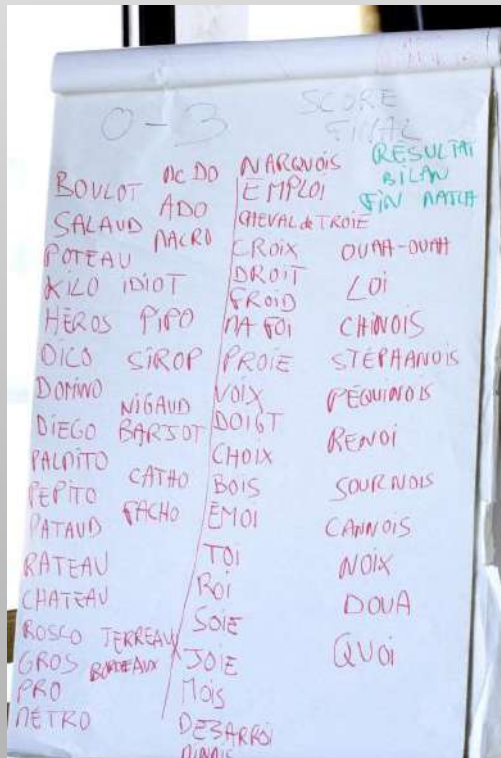 0-3
SCORE
FINAL
RÉSULTAT
BILAN
FIN MATCH
BOULOT
SALAUD
POTEAU
KILO
HÉROS
DICO
DOMINO
DIEGO
PALMITO
PEPITO
PATAUD
RATEAU
CHATEAU
ROSCO
GROS
PRO
METRO
MC DO
ADO
MACRO
IDIOT
PIPO
SIROP
NIGAUD
BARJOT
CATHO
FACHO
TERREAU
BORDEAUX
NARQUOIS
EMPLOI
CHEVAL de TROIE
CROIX
DROIT
FROID
MA FOI
PROIE
VOIX
DOIGT
CHOIX
BOIS
EMOI
TOI
ROI
SOIE
JOIE
MOIS
DESARROI
OUAH-OUAH
LOI
CHINOIS
STÉPHANOIS
PÉQUINOIS
RENOI
SOURNOIS
CANNOIS
NOIX
DOUA
QUOI